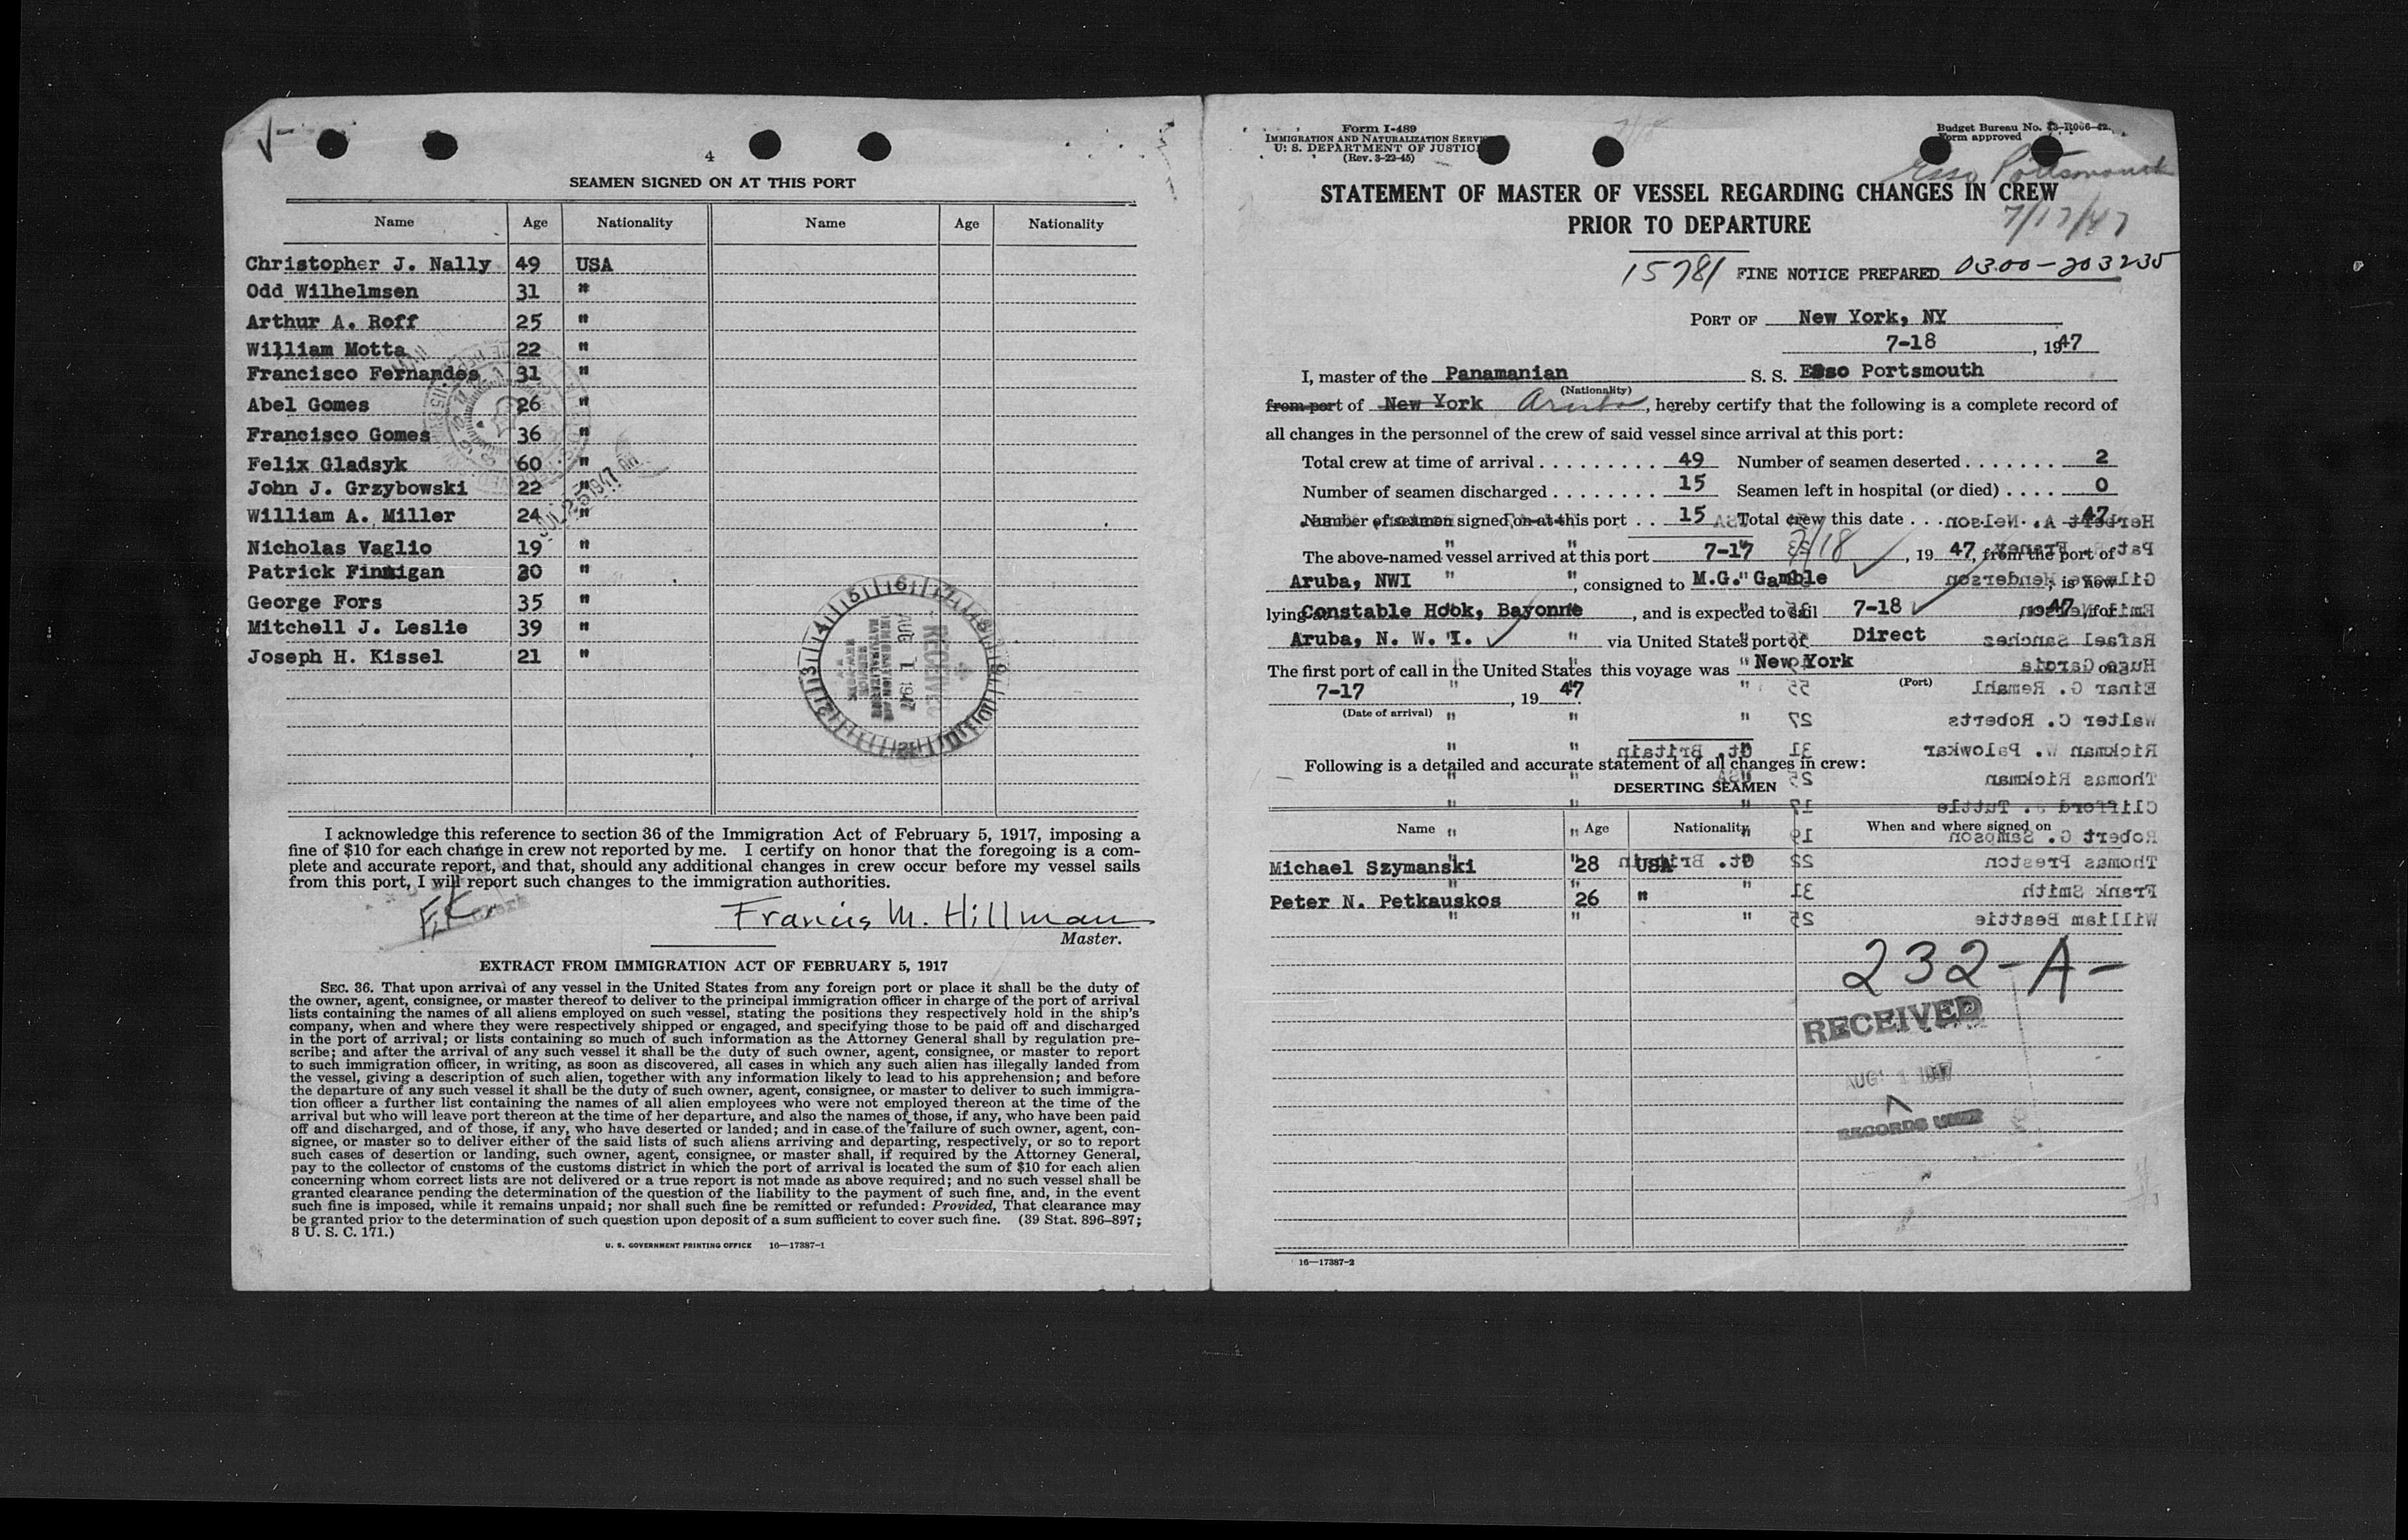 4
SEAMEN SIGNED ON AT THIS PORT
Name Age Nationality Name Age Nationality
Christopher J. Nally 49 USA
Odd Wilhelmsen 31 "
Arthur A. Roff 25 "
William Motta 22 "
Francisco Fernandes 31 "
Abel Gomes 26 "
Francisco Gomes 36 "
Felix Gladsyk 60 "
John J. Grzybowski 22 "
William A. Miller 24 "
Nicholas Vaglio 19 "
Patrick Finnigan 30 "
George Fors 35 "
Mitchell J. Leslie 39 "
Joseph H. Kissel 21 "
JUL 25 1947
RECEIVED
AUG 1 1947
IMMIGRATION AND
NATURALIZATION
SERVICE
I acknowledge this reference to section 36 of the Immigration Act of February 5, 1917, imposing a
fine of $10 for each change in crew not reported by me. I certify on honor that the foregoing is a com-
plete and accurate report, and that, should any additional changes in crew occur before my vessel sails
from this port, I will report such changes to the immigration authorities.
F.K.
Francis M. Hillman
Master.
EXTRACT FROM IMMIGRATION ACT OF FEBRUARY 5, 1917
SEC. 36. That upon arrival of any vessel in the United States from any foreign port or place it shall be the duty of
the owner, agent, consignee, or master thereof to deliver to the principal immigration officer in charge of the port of arrival
lists containing the names of all aliens employed on such vessel, stating the positions they respectively hold in the ship's
company, when and where they were respectively shipped or engaged, and specifying those to be paid off and discharged
in the port of arrival; or lists containing so much of such information as the Attorney General shall by regulation pre-
scribe; and after the arrival of any such vessel it shall be the duty of such owner, agent, consignee, or master to report
to such immigration officer, in writing, as soon as discovered, all cases in which any such alien has illegally landed from
the vessel, giving a description of such alien, together with any information likely to lead to his apprehension; and before
the departure of any such vessel it shall be the duty of such owner, agent, consignee, or master to deliver to such immigra-
tion officer a further list containing the names of all alien employees who were not employed thereon at the time of the
arrival but who will leave port thereon at the time of her departure, and also the names of those, if any, who have been paid
off and discharged, and of those, if any, who have deserted or landed; and in case of the failure of such owner, agent, con-
signee, or master so to deliver either of the said lists of such aliens arriving and departing, respectively, or so to report
such cases of desertion or landing, such owner, agent, consignee, or master shall, if required by the Attorney General,
pay to the collector of customs of the customs district in which the port of arrival is located the sum of $10 for each alien
concerning whom correct lists are not delivered or a true report is not made as above required; and no such vessel shall be
granted clearance pending the determination of the question of the liability to the payment of such fine, and, in the event
such fine is imposed, while it remains unpaid; nor shall such fine be remitted or refunded: Provided, That clearance may
be granted prior to the determination of such question upon deposit of a sum sufficient to cover such fine. (39 Stat. 896–897;
8 U. S. C. 171.)
U. S. GOVERNMENT PRINTING OFFICE 16—17387-1
Form I-489
IMMIGRATION AND NATURALIZATION SERVICE
U. S. DEPARTMENT OF JUSTICE
(Rev. 3-22-45)
Budget Bureau No. 43-R066-42.
Form approved
Esso Portsmouth
STATEMENT OF MASTER OF VESSEL REGARDING CHANGES IN CREW
PRIOR TO DEPARTURE
7/17/47
15781 FINE NOTICE PREPARED 0300-203235
PORT OF New York, NY
7-18, 1947
I, master of the Panamanian S. S. Esso Portsmouth
(Nationality)
from port of New York Aruba, hereby certify that the following is a complete record of
all changes in the personnel of the crew of said vessel since arrival at this port:
Total crew at time of arrival 49 Number of seamen deserted 2
Number of seamen discharged 15 Seamen left in hospital (or died) 0
Number of seamen signed on at this port 15 Total crew this date 47
The above-named vessel arrived at this port 7-17 7/18, 19 47, from the port of
Aruba, NWI, consigned to M.G. Gamble, is now
lying Constable Hook, Bayonne, and is expected to sail 7-18, 47, for
Aruba, N. W. I. via United States port of Direct
The first port of call in the United States this voyage was New York on
(Port)
7-17, 19 47.
(Date of arrival)
Following is a detailed and accurate statement of all changes in crew:
DESERTING SEAMEN
Name Age Nationality When and where signed on
Michael Szymanski 28 USA
Peter N. Petkauskos 26 "
Herbert A. Nelson
Gilmore Henderson
Emil Nelson
Rafael Sanchez
Hugo Garcia
Einar G. Remahl 55
Walter C. Roberts 27
Rickman W. Palowkar 31 Gt. Britain
Thomas Rickman 25 USA
Clifford J. Tuttle 17
Robert G. Sampson 19
Thomas Preston 22 Gt. Britain
Frank Smith 31 "
William Beattie 25 "
232-A-
RECEIVED
AUG 1 1947
RECORDS UNIT
16—17387-2